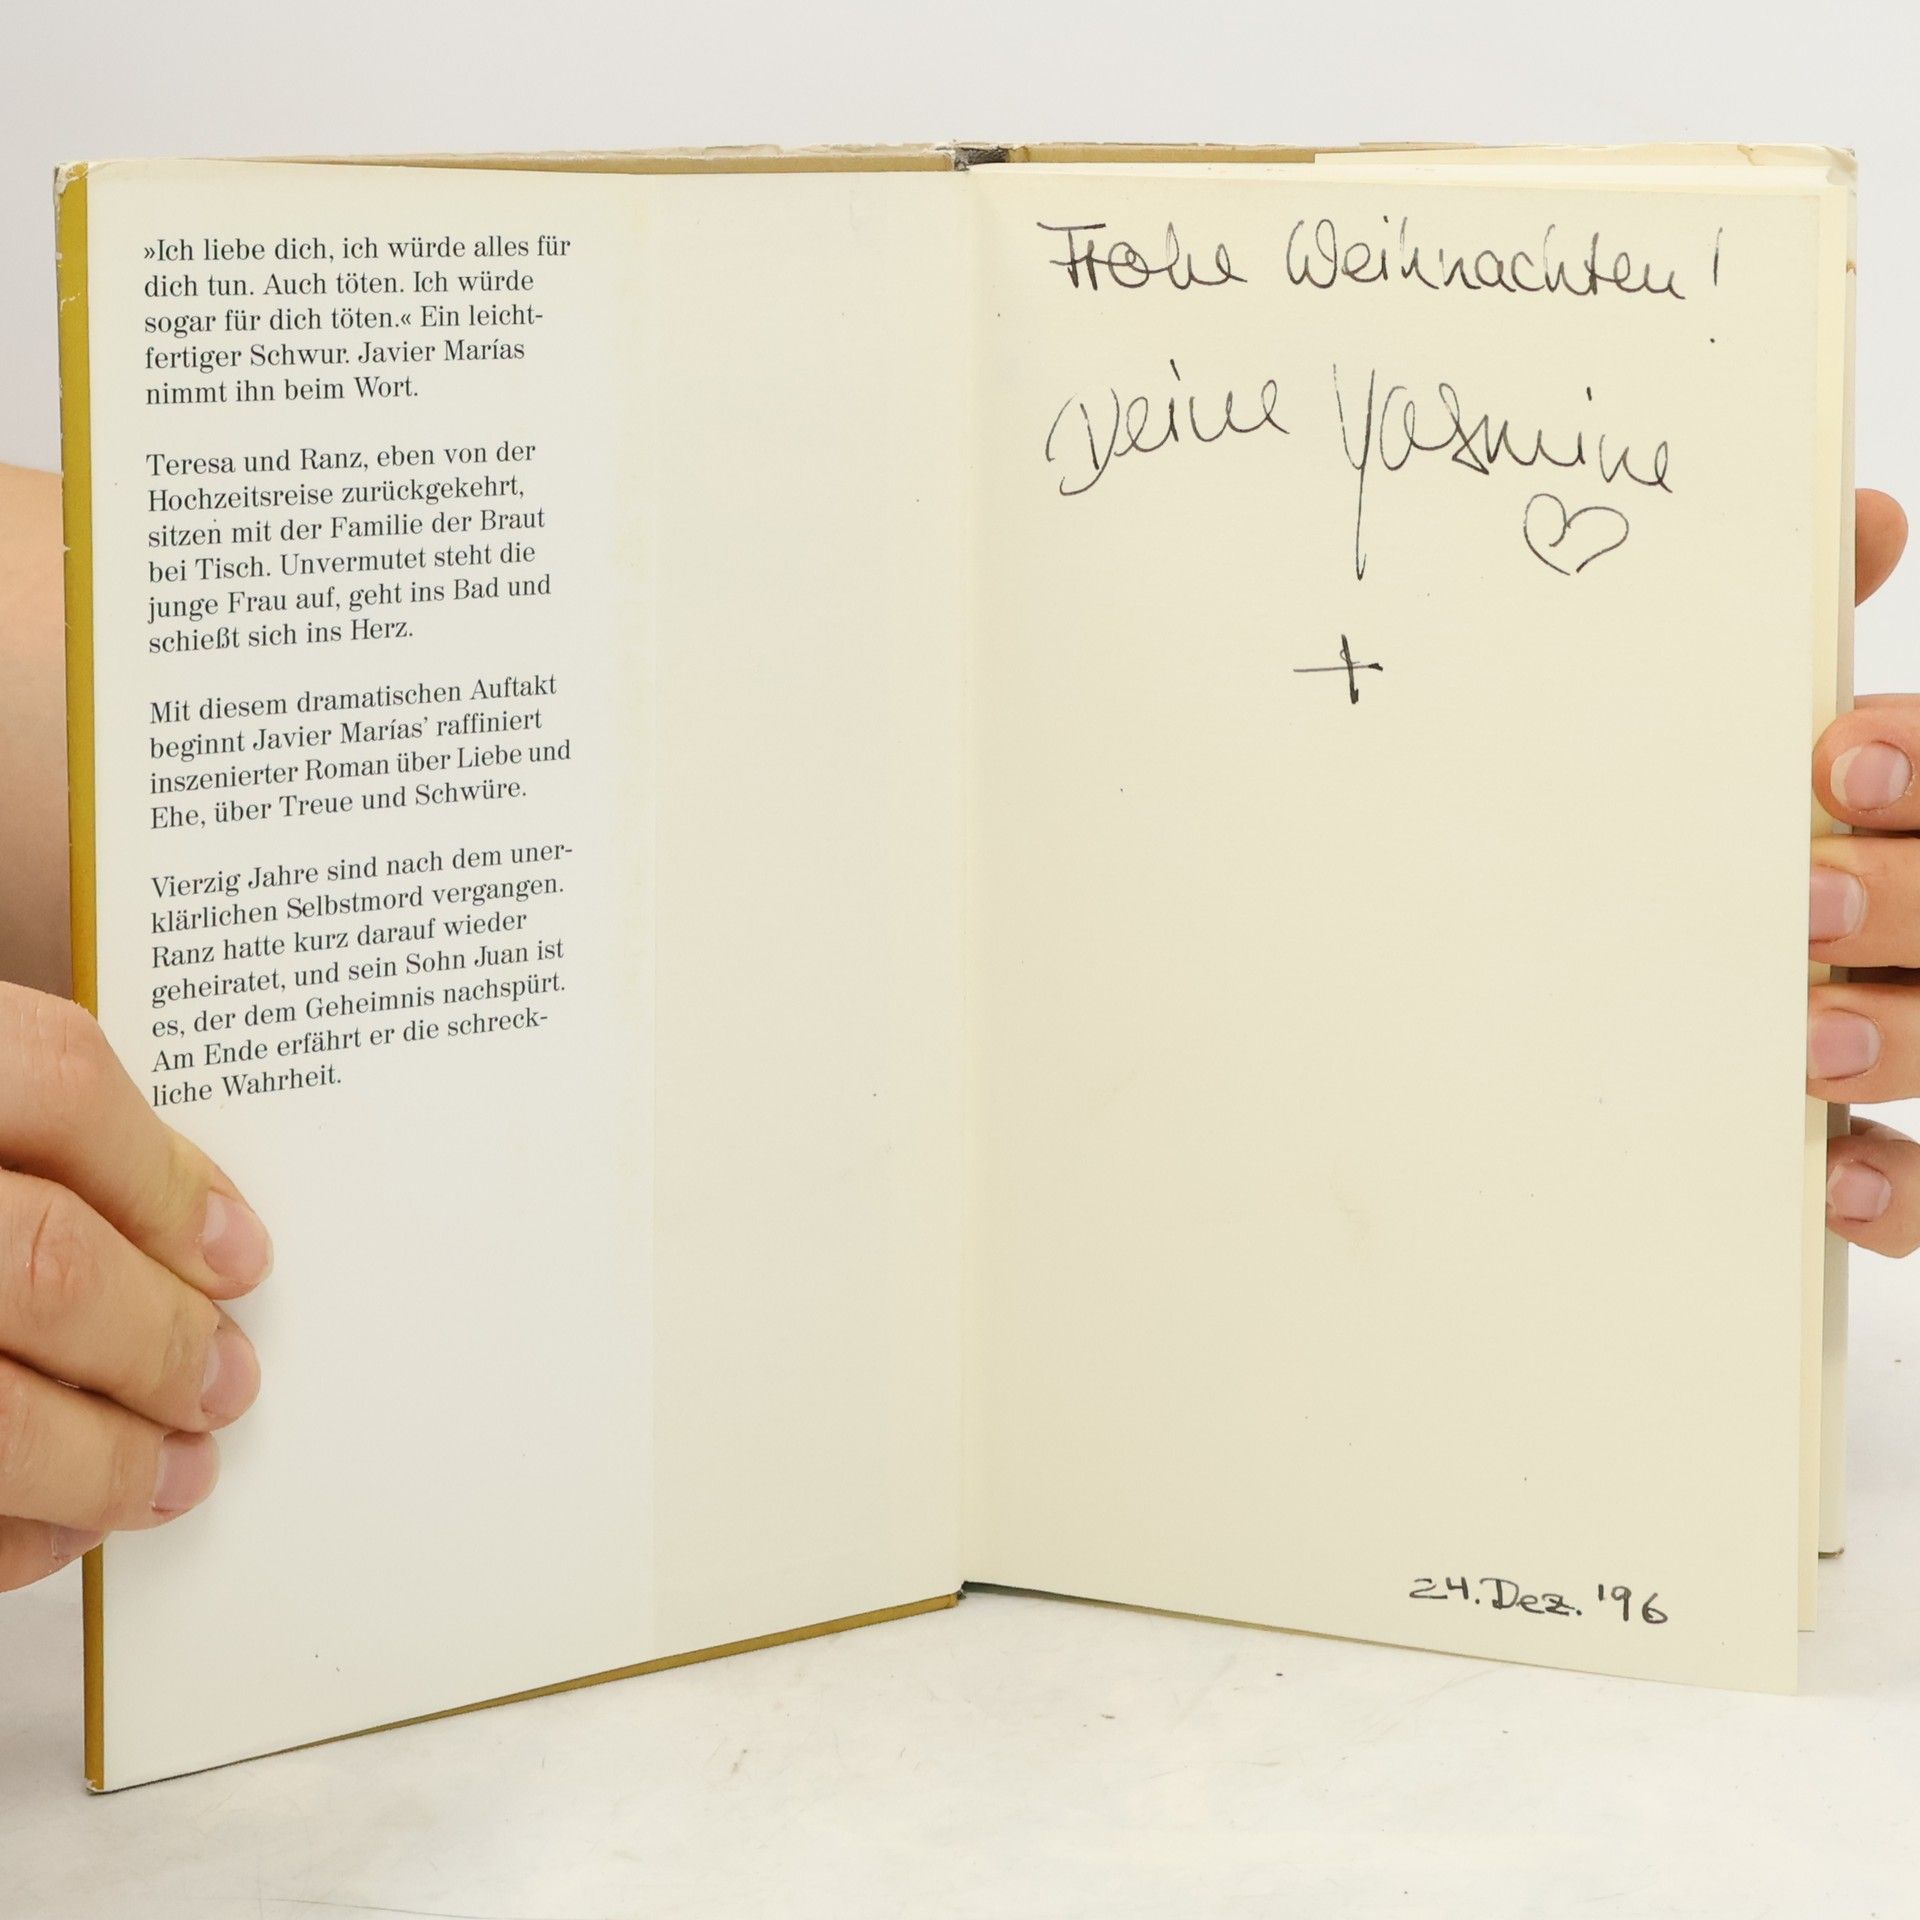 »Ich liebe dich, ich würde alles für
dich tun. Auch töten. Ich würde
sogar für dich töten.« Ein leicht-
fertiger Schwur. Javier Marías
nimmt ihn beim Wort.
Teresa und Ranz, eben von der
Hochzeitsreise zurückgekehrt,
sitzen mit der Familie der Braut
bei Tisch. Unvermutet steht die
junge Frau auf, geht ins Bad und
schießt sich ins Herz.
Mit diesem dramatischen Auftakt
beginnt Javier Marías’ raffiniert
inszenierter Roman über Liebe und
Ehe, über Treue und Schwüre.
Vierzig Jahre sind nach dem uner-
klärlichen Selbstmord vergangen.
Ranz hatte kurz darauf wieder
geheiratet, und sein Sohn Juan ist
es, der dem Geheimnis nachspürt.
Am Ende erfährt er die schreck-
liche Wahrheit.
Frohe Weihnachten!
Deine Yasmine
♡
+
24. Dez. '96